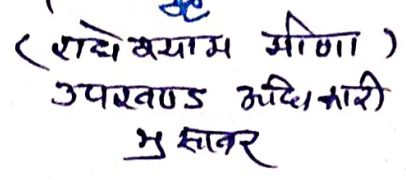 (राधेश्याम मीणा)
उपखण्ड अधिकारी
भुसावर